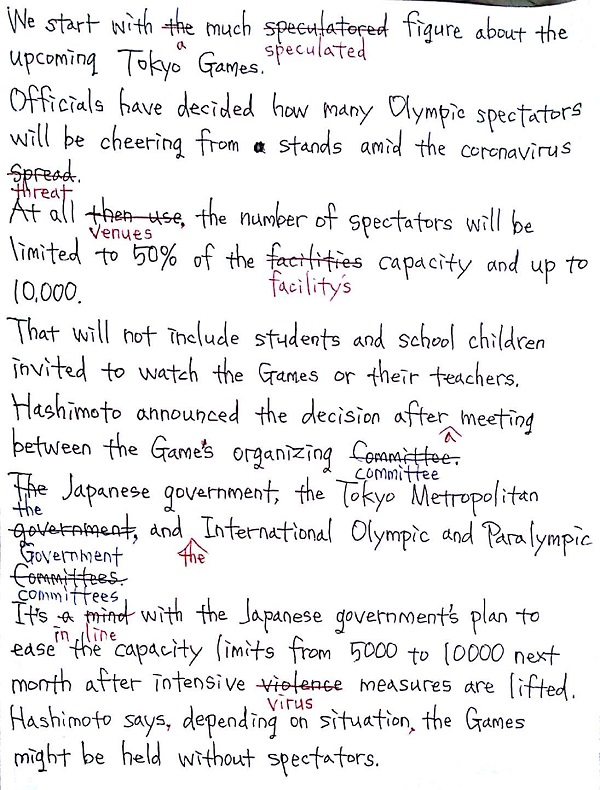 We start with the much speculatored figure about the
a speculated
upcoming Tokyo Games.
Officials have decided how many Olympic spectators
will be cheering from a stands amid the coronavirus
spread.
threat
At all then use, the number of spectators will be
venues
limited to 50% of the facilities capacity and up to
facility's
10,000.
That will not include students and school children
invited to watch the Games or their teachers.
Hashimoto announced the decision after meeting
a
between the Game's organizing Committee.
committee
The Japanese government, the Tokyo Metropolitan
the
government, and International Olympic and Paralympic
Government the
Committees.
committees
It's a mind with the Japanese government's plan to
in line
ease the capacity limits from 5000 to 10000 next
month after intensive violence measures are lifted.
virus
Hashimoto says, depending on situation, the Games
might be held without spectators.